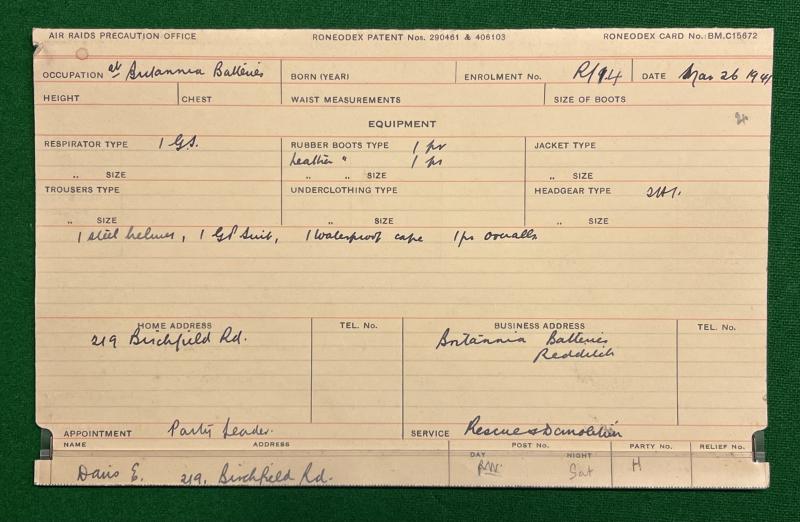 AIR RAIDS PRECAUTION OFFICE RONEODEX PATENT Nos. 290461 & 406103 RONEODEX CARD No.:BM.C15672
OCCUPATION at Britannia Batteries BORN (YEAR) ENROLMENT No. R/94 DATE Mar 26 1941
HEIGHT CHEST WAIST MEASUREMENTS SIZE OF BOOTS
EQUIPMENT
RESPIRATOR TYPE 1 G.S. RUBBER BOOTS TYPE 1 pr JACKET TYPE
Leather " 1 pr
„ SIZE „ SIZE
TROUSERS TYPE UNDERCLOTHING TYPE HEADGEAR TYPE
„ SIZE „ SIZE „ SIZE
1 steel helmet, 1 GP Suit, 1 Waterproof cape 1 pr overalls
HOME ADDRESS TEL. No. BUSINESS ADDRESS TEL. No.
219 Birchfield Rd. Britannia Batteries
Redditch
APPOINTMENT Party Leader. SERVICE Rescue & Demolition
NAME ADDRESS POST No. PARTY No. RELIEF No.
DAY NIGHT
Davis E. 219, Birchfield Rd. Sat H